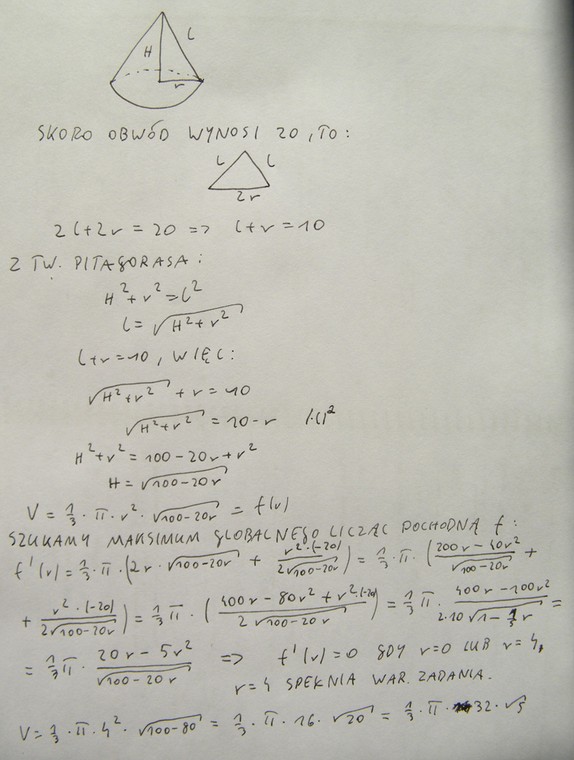 H l
r
SKORO OBWÓD WYNOSI 20, TO:
l l
2r
2l+2r = 20 => l+r = 10
Z TW. PITAGORASA:
H²+r² = l²
l = √(H²+r²)
l+r = 10, WIĘC:
√(H²+r²) + r = 10
√(H²+r²) = 10-r /()²
H²+r² = 100-20r+r²
H = √(100-20r)
V = 1/3 · π · r² · √(100-20r) = f(r)
SZUKAMY MAKSIMUM GLOBALNEGO LICZĄC POCHODNĄ f:
f'(r) = 1/3 · π · (2r · √(100-20r) + r²·(-20)/(2√(100-20r))) = 1/3 · π · ((200r - 40r²)/√(100-20r) +
+ r²·(-20)/(2√(100-20r))) = 1/3 π · ((400r - 80r² + r²·(-20))/(2√(100-20r))) = 1/3 π · (400r - 100r²)/(2·10√(1 - 1/5 r)) =
= 1/3 π · (20r - 5r²)/√(100-20r) => f'(r)=0 GDY r=0 LUB r=4,
r=4 SPEŁNIA WAR. ZADANIA.
V = 1/3 · π · 4² · √(100-80) = 1/3 · π · 16 · √20 = 1/3 · π · 32 · √5